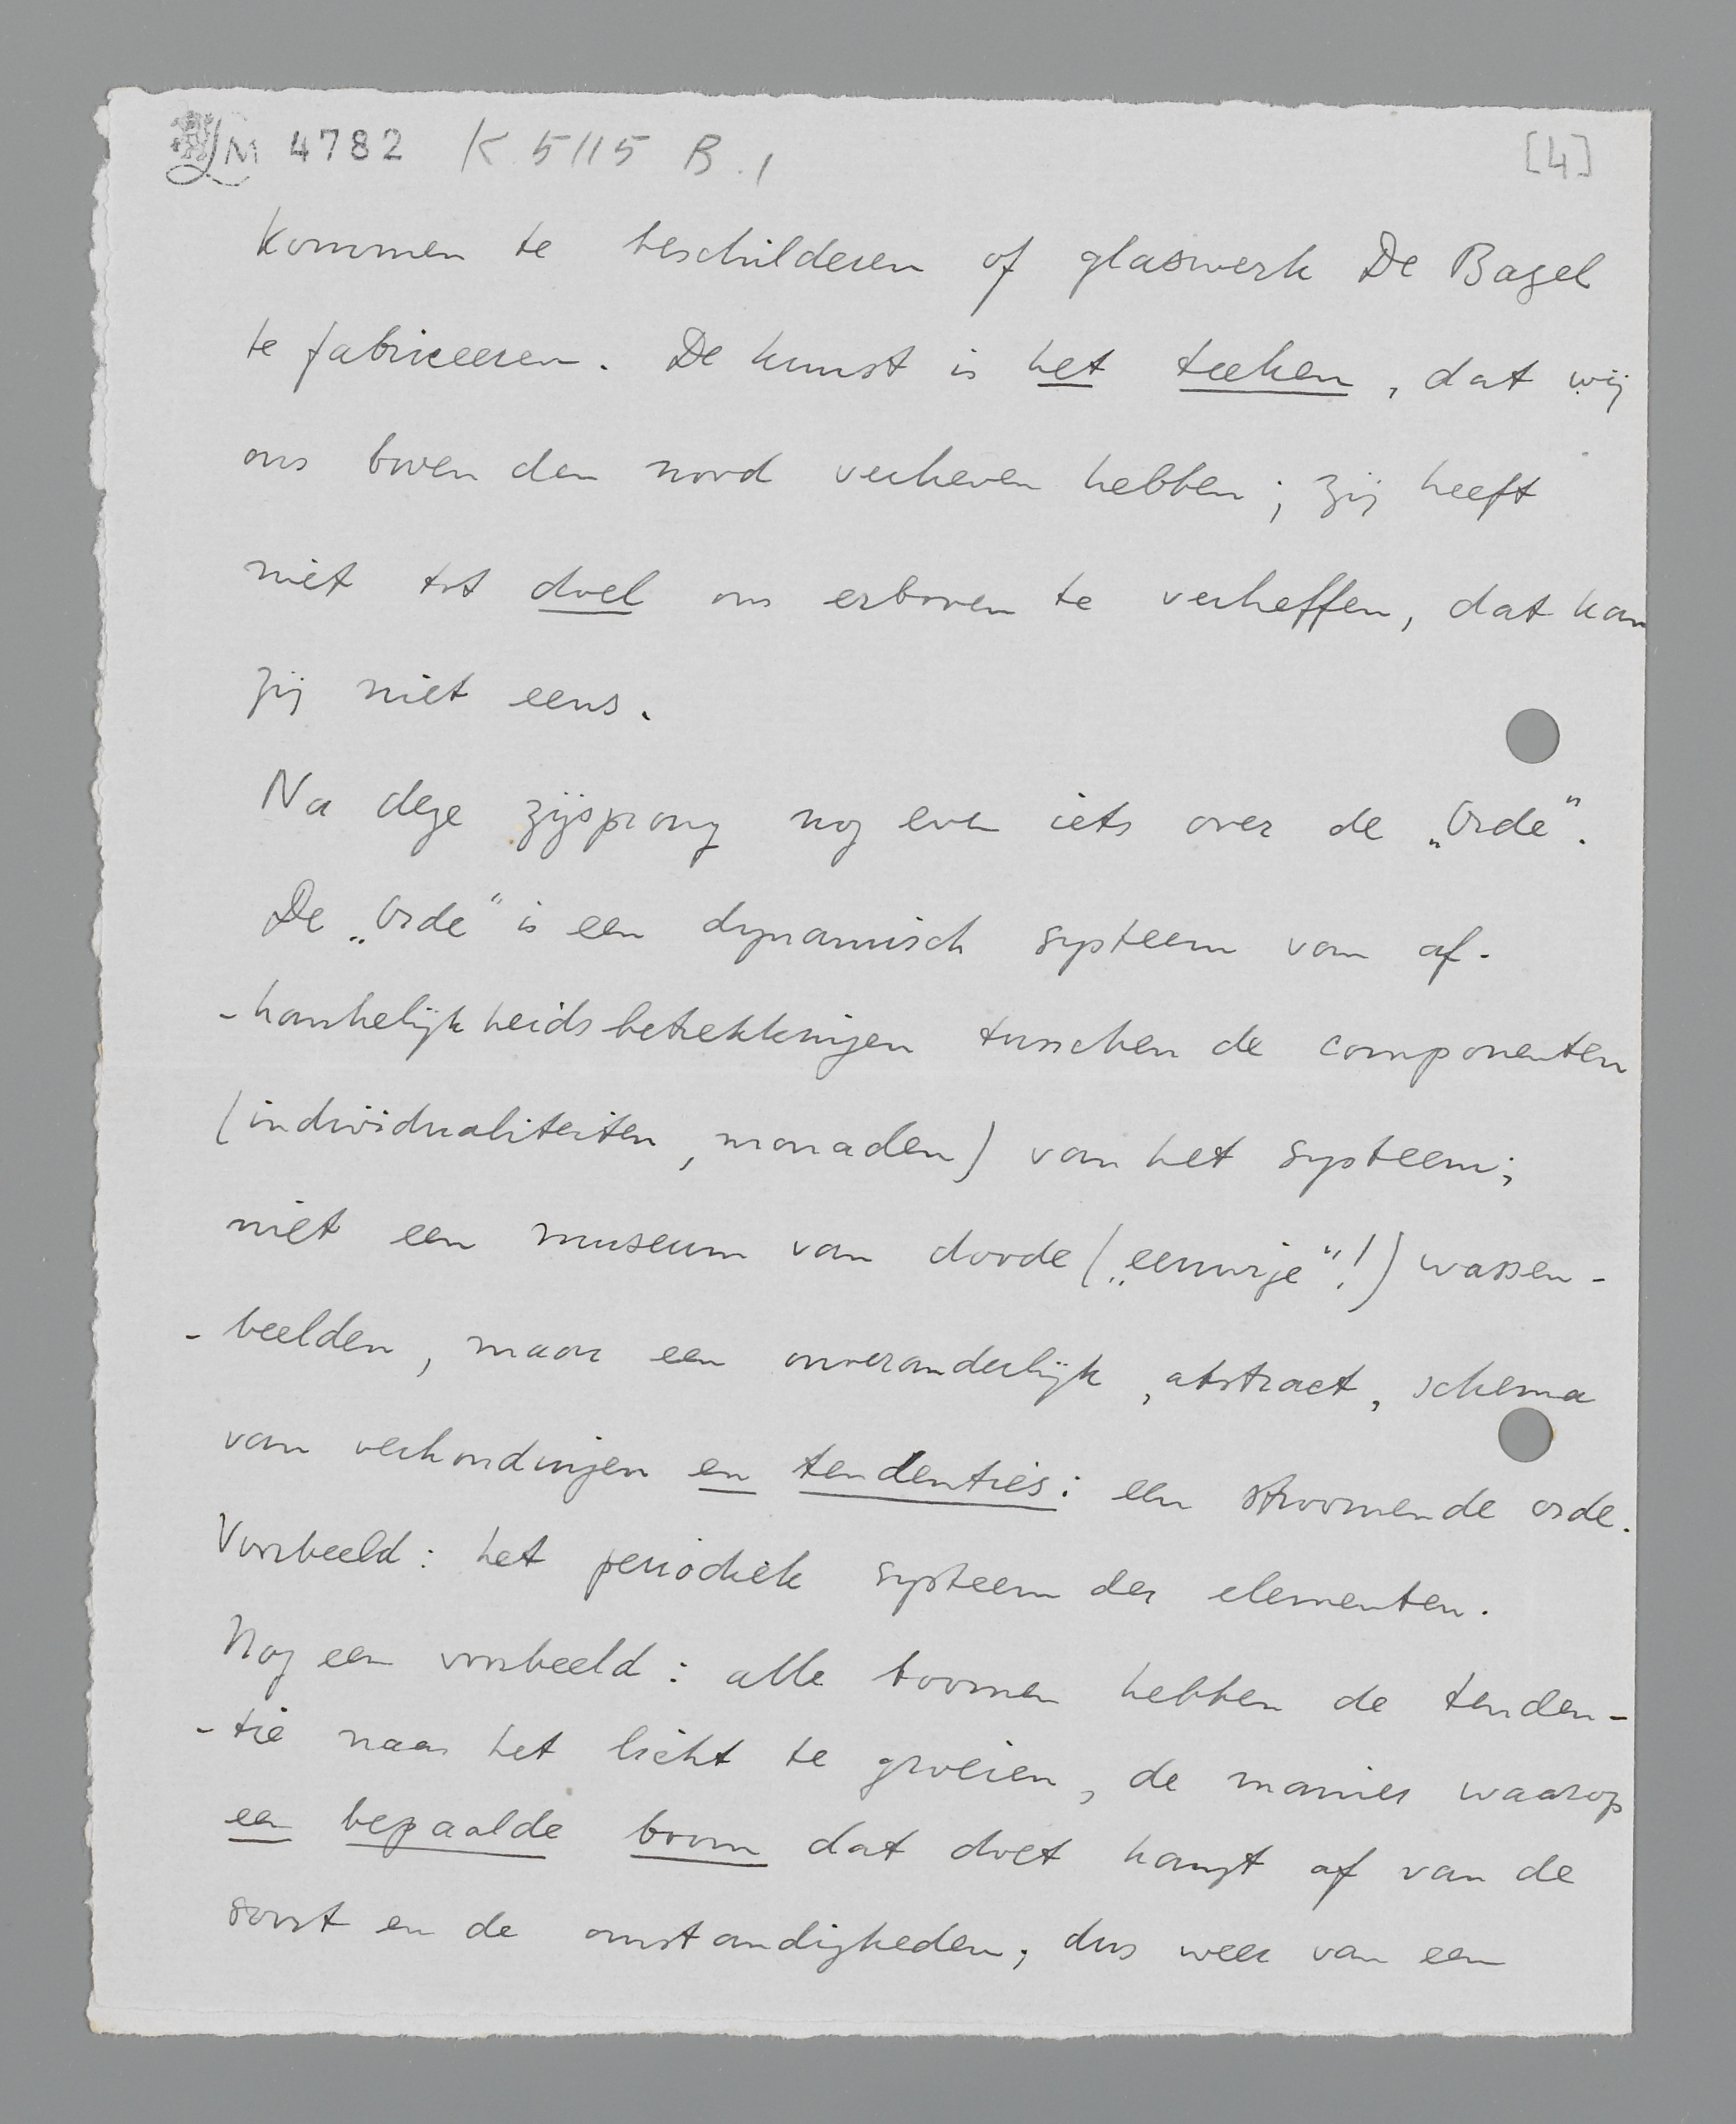 LM 4782 K 5115 B.1 [4]
kommen te beschilderen of glaswerk De Bazel
te fabriceeren. De kunst is het teeken, dat wij
ons boven den nood verheven hebben; zij heeft
niet tot doel ons erboven te verheffen, dat kan
zij niet eens.
Na deze zijsprong nog even iets over de „Orde".
De „Orde" is een dynamisch systeem van af-
-hankelijkheidsbetrekkingen tusschen de componenten
(individualiteiten, monaden) van het systeem;
niet een museum van doode („eeuwige"!) wassen-
-beelden, maar een onveranderlijk, abstract, schema
van verhoudingen en tendenties: een stroomende orde.
Voorbeeld: het periodiek systeem der elementen.
Nog een voorbeeld: alle boomen hebben de tenden-
-tie naar het licht te groeien, de manier waarop
een bepaalde boom dat doet hangt af van de
soort en de omstandigheden; dus weer van een